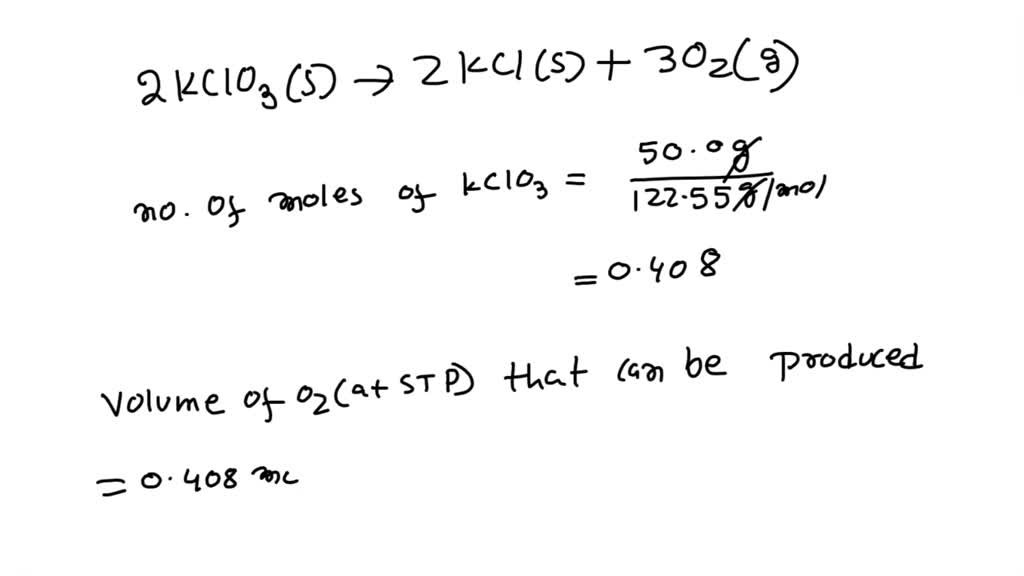 2KClO₃(s) → 2KCl(s) + 3O₂(g)
no. of moles of KClO₃ = 50.0g / 122.55g/mol
= 0.408
Volume of O₂(at STP) that can be produced
= 0.408 mc